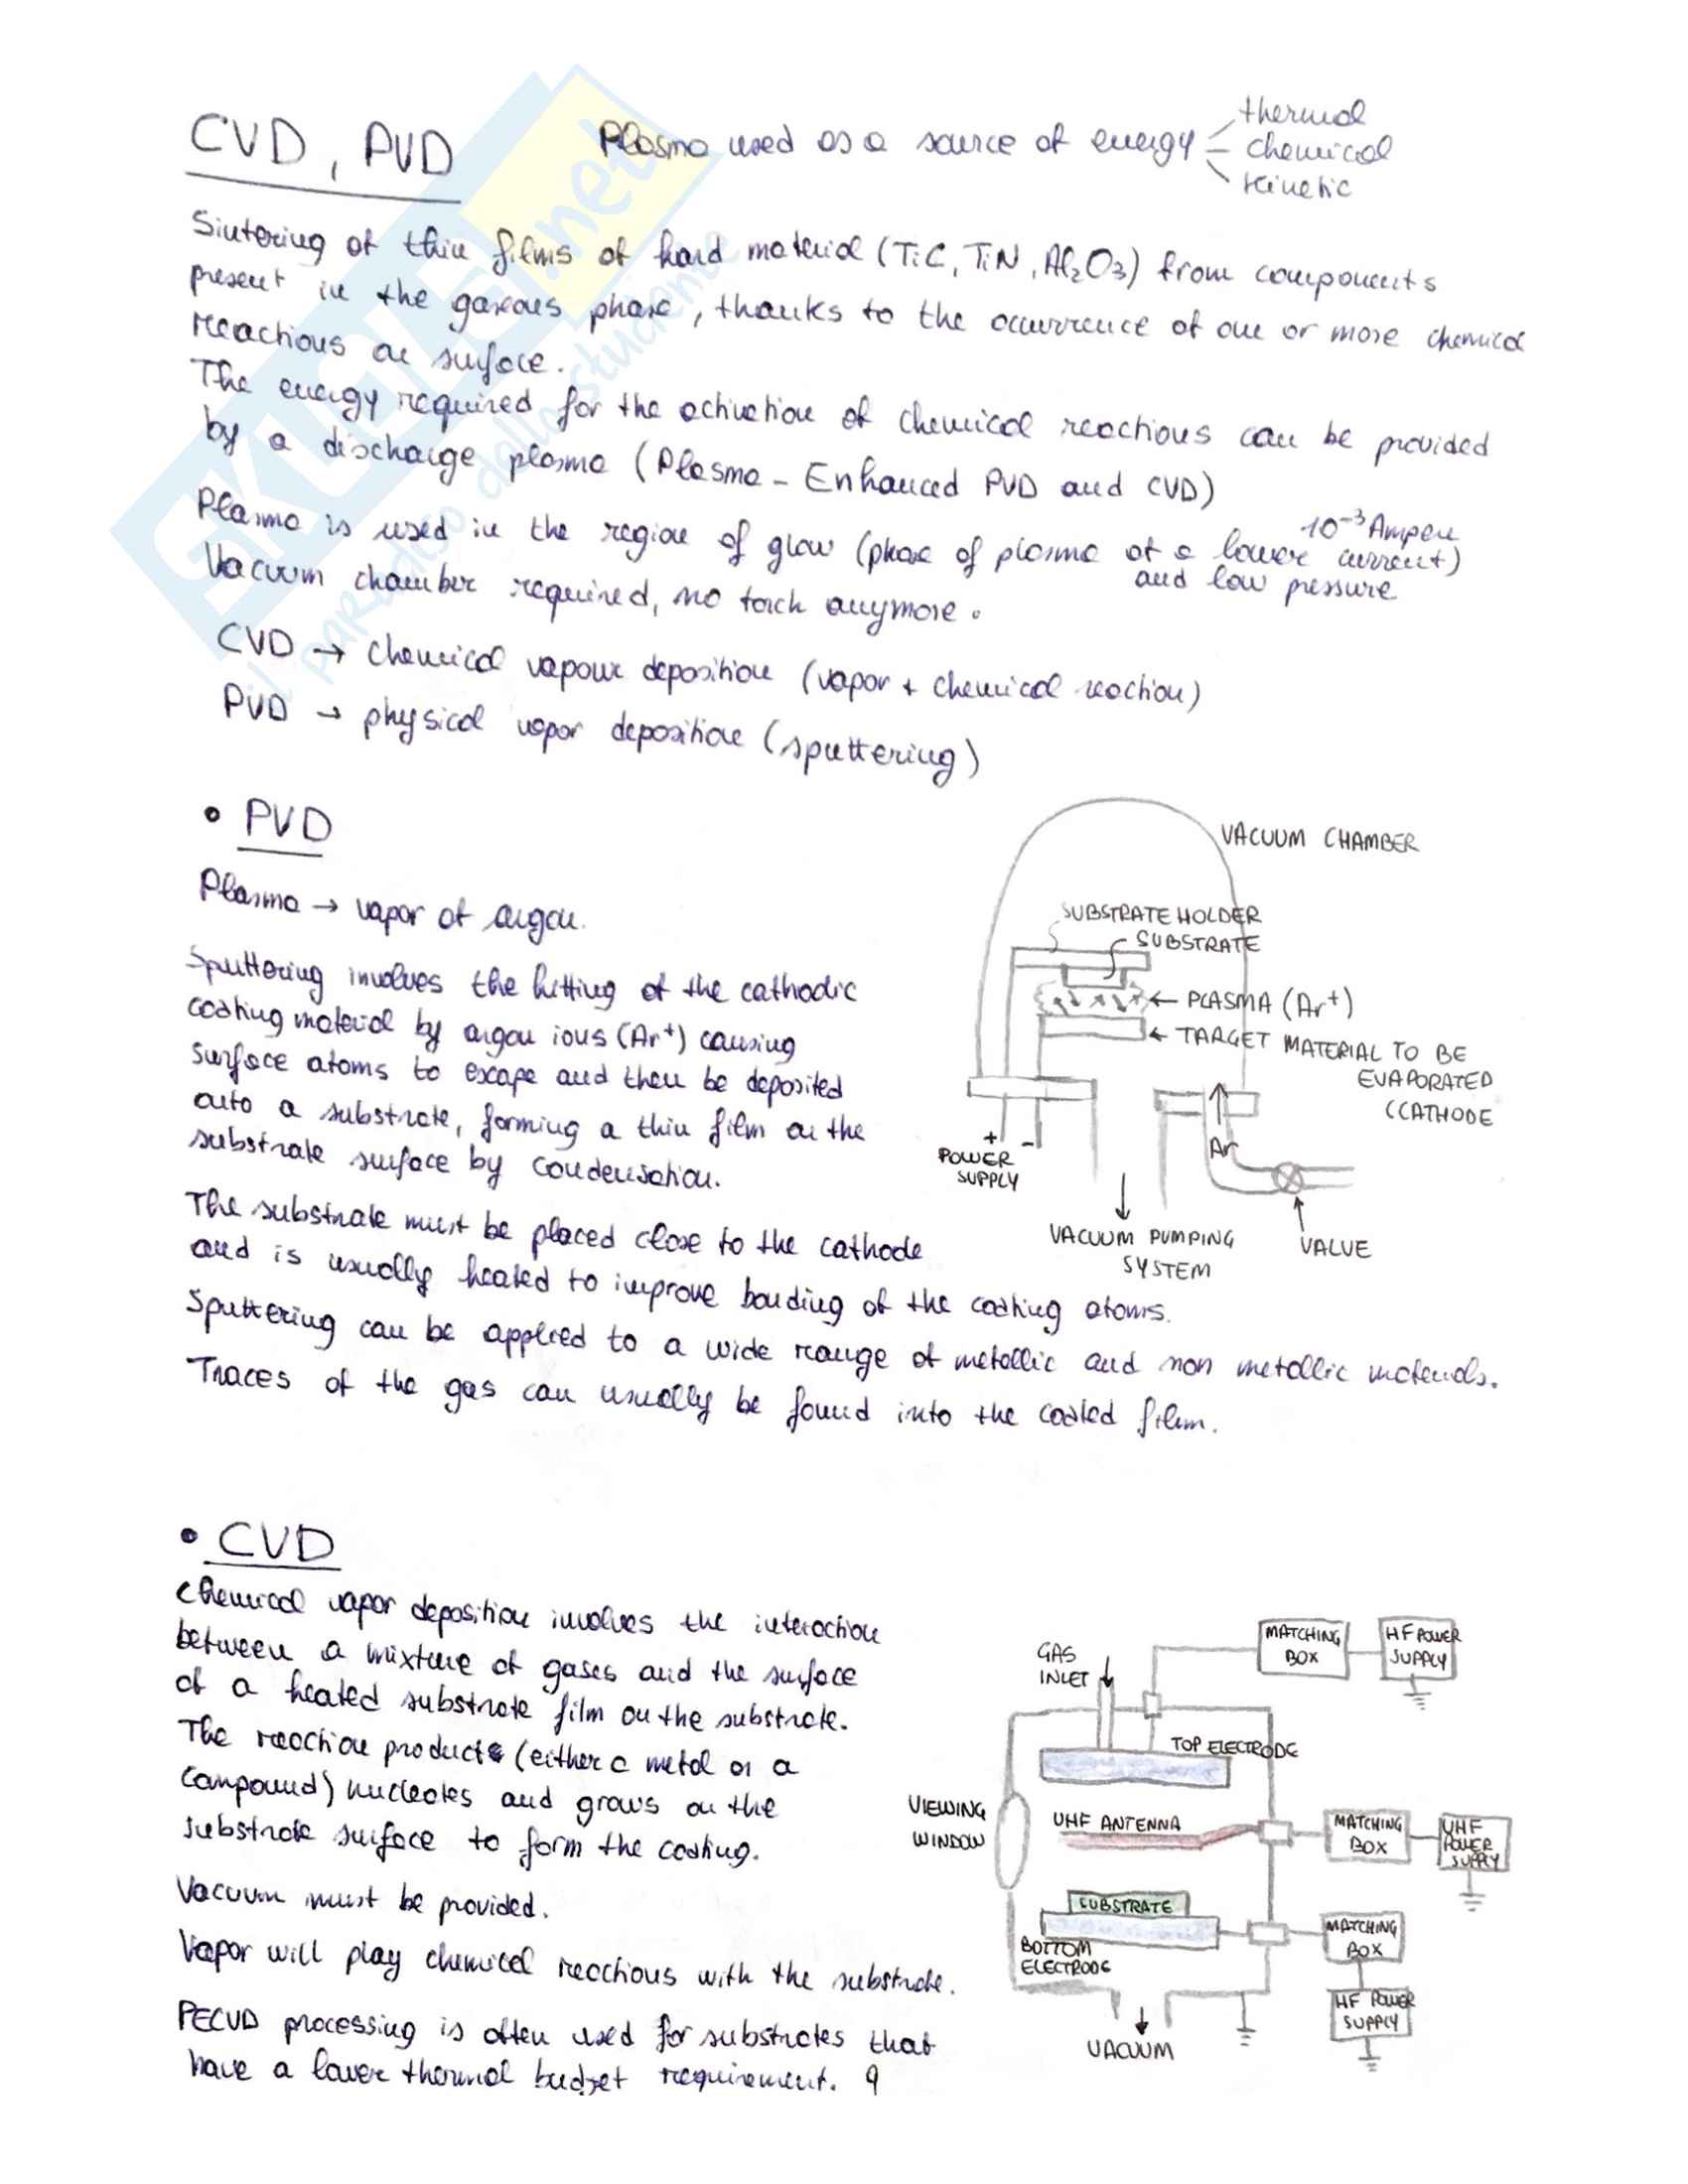 CVD, PVD
Plasma used as a source of energy
thermal
chemical
kinetic
Sintering of thin films of hard material (TiC, TiN, Al₂O₃) from components
present in the gaseous phase, thanks to the occurrence of one or more chemical
reactions on surface.
The energy required for the activation of chemical reactions can be provided
by a discharge plasma (Plasma - Enhanced PVD and CVD)
10⁻³ Ampere
Plasma is used in the region of glow (phase of plasma at a lower current)
and low pressure
Vacuum chamber required, no torch anymore.
CVD → chemical vapour deposition (vapor + chemical reaction)
PVD → physical vapor deposition (sputtering)
SKUOLA.net
il paradiso dello studente
• PVD
Plasma → vapor of argon.
Sputtering involves the hitting of the cathodic
coating material by argon ions (Ar⁺) causing
surface atoms to escape and then be deposited
onto a substrate, forming a thin film on the
substrate surface by condensation.
The substrate must be placed close to the cathode
and is usually heated to improve bonding of the coating atoms.
Sputtering can be applied to a wide range of metallic and non metallic materials.
Traces of the gas can usually be found into the coated film.
VACUUM CHAMBER
SUBSTRATE HOLDER
SUBSTRATE
← PLASMA (Ar⁺)
← TARGET MATERIAL TO BE
EVAPORATED
(CATHODE
+ -
POWER
SUPPLY
Ar
VACUUM PUMPING
SYSTEM
VALVE
• CVD
Chemical vapor deposition involves the interaction
between a mixture of gases and the surface
of a heated substrate film on the substrate.
The reaction products (either a metal or a
compound) nucleates and grows on the
substrate surface to form the coating.
Vacuum must be provided.
Vapor will play chemical reactions with the substrate.
PECVD processing is often used for substrates that
have a lower thermal budget requirement. 9
GAS
INLET
MATCHING
BOX
HF POWER
SUPPLY
TOP ELECTRODE
VIEWING
WINDOW
UHF ANTENNA
MATCHING
BOX
UHF
POWER
SUPPLY
SUBSTRATE
BOTTOM
ELECTRODE
MATCHING
BOX
HF POWER
SUPPLY
VACUUM